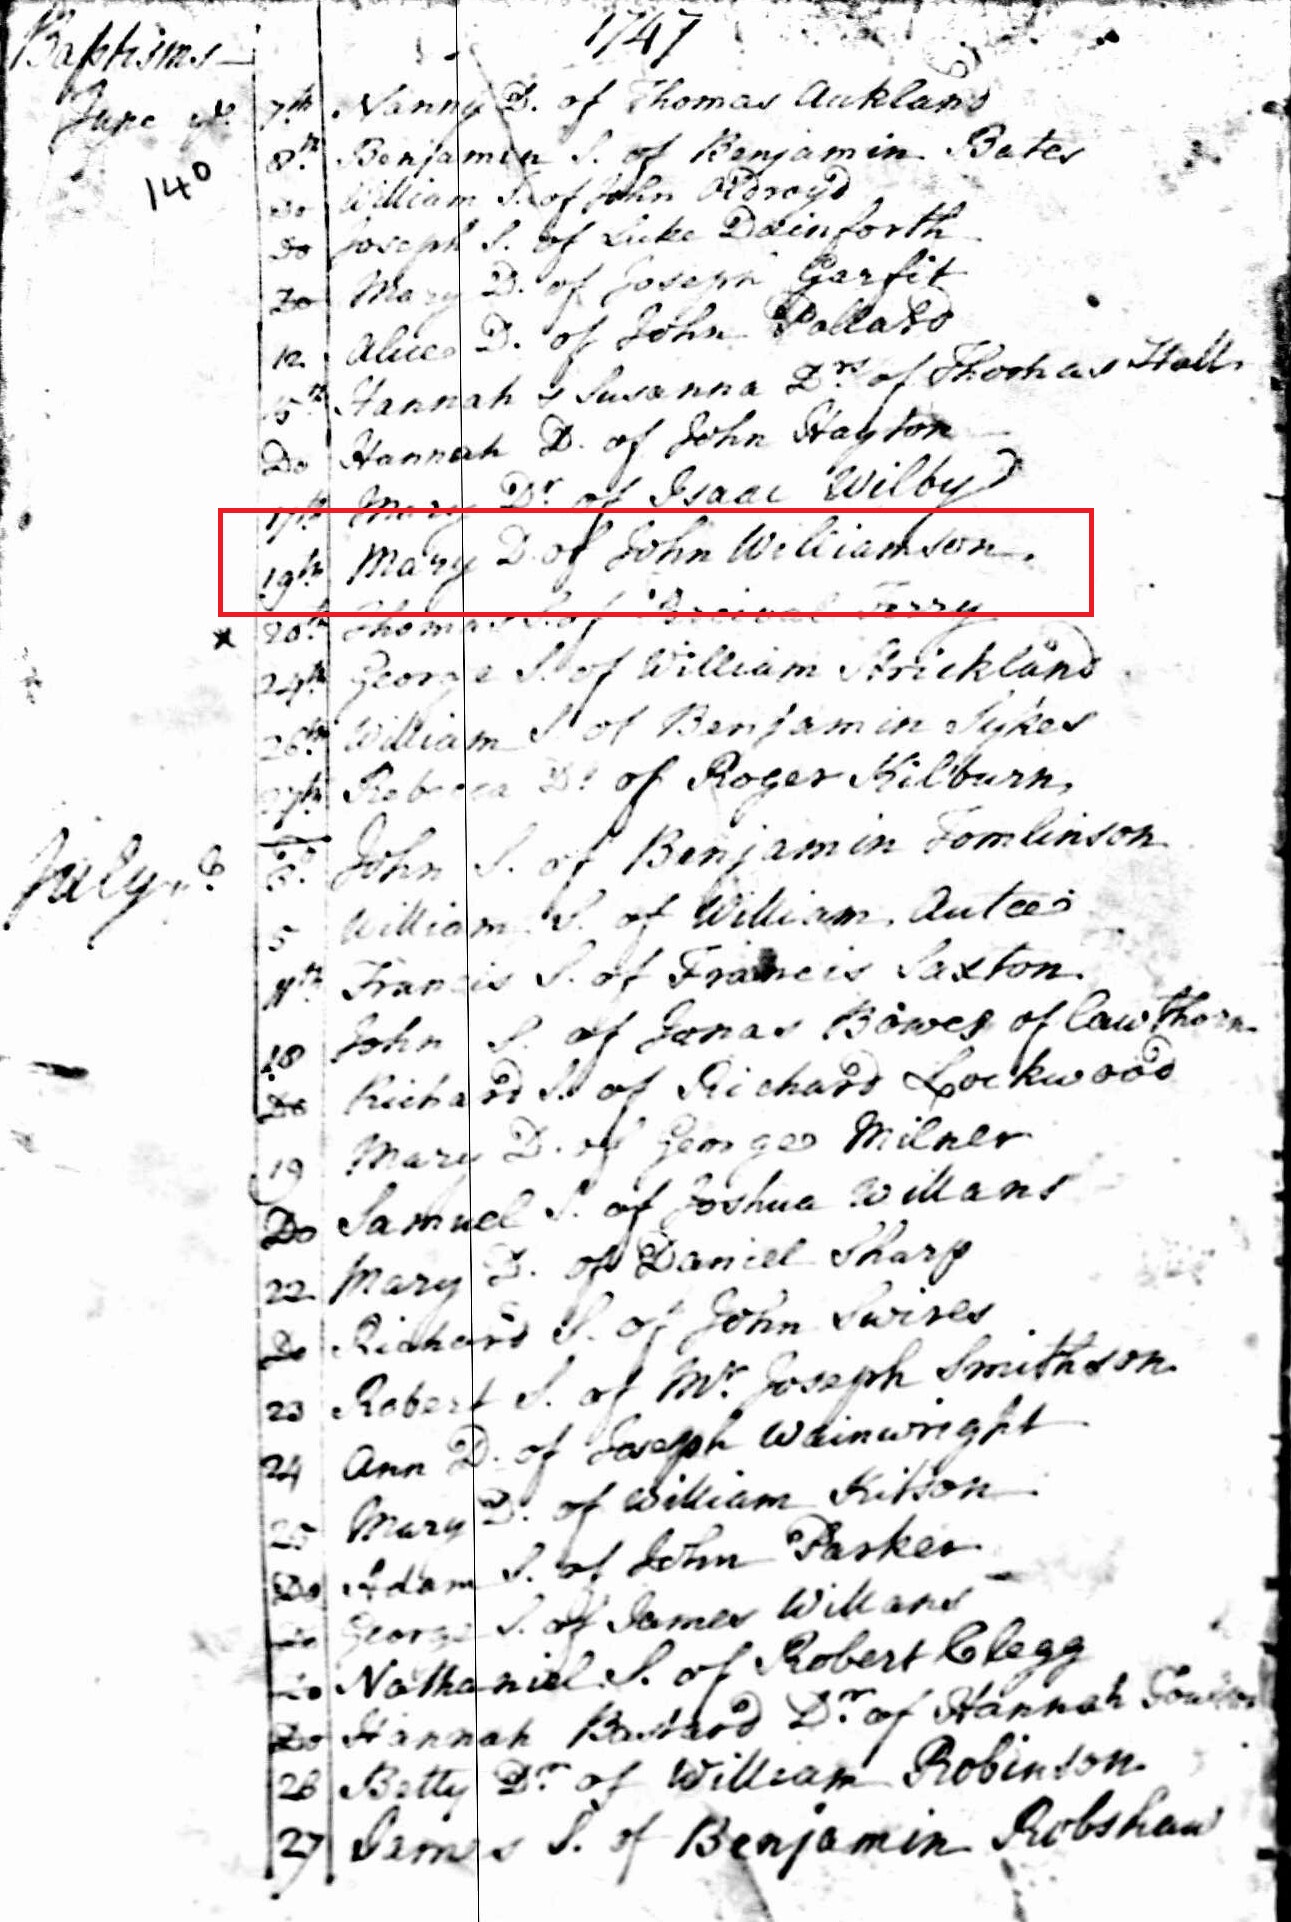 Baptisms 1747
June ye 7th Nanny D. of Thomas Aukland
140
8th Benjamin S. of Benjamin Bates
Do William S. of John Oldroyd
Do Joseph S. of Luke Dainforth
Do Mary D. of Joseph Garfit
12 Alice D. of John Pollard
15th Hannah & Susanna Drs of Thomas Hall
Do Hannah D. of John Hayton
17th Mary Dr of Isaac Wilby
19th Mary D. of John Williamson
x 20th Thomas S. of Terry
24th George S. of William Strickland
26th William S. of Benjamin Sykes
27th Rebecca D. of Roger Kilburn
July ye 3d John S. of Benjamin Tomlinson
5 William S. of William Autee
11th Francis S. of Francis Saxton
18 John S. of Jonas Bower of Cawthorn
Do Richard S. of Richard Lockwood
19 Mary D. of George Milner
Do Samuel S. of Joshua Willans
22 Mary D. of Daniel Sharp
Do Richard S. of John Swires
23 Robert S. of Mr. Joseph Smithson
24 Ann D. of Joseph Wainwright
25 Mary D. of William Kitson
Do Adam S. of John Parker
Do George S. of James Willans
Do Nathaniel S. of Robert Clegg
Do Hannah Bastard Dr. of Hannah
26 Betty Dr. of William Robinson
27 James S. of Benjamin Robshaw